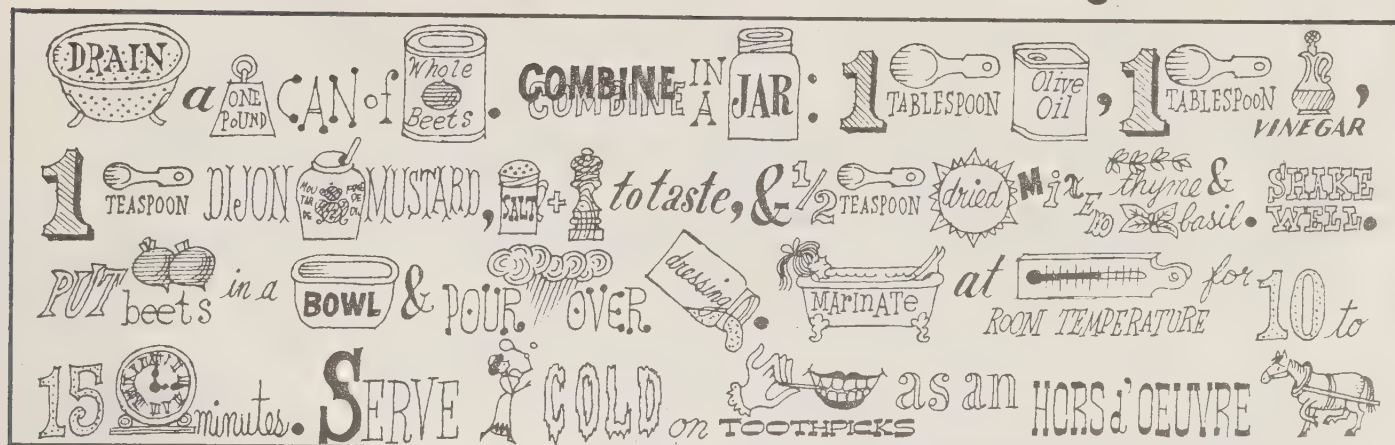 DRAIN a ONE POUND CAN of Whole Beets. COMBINE IN A JAR: 1 TABLESPOON Olive Oil, 1 TABLESPOON VINEGAR,
1 TEASPOON DIJON MUSTARD, SALT + to taste, & 1/2 TEASPOON dried MixED thyme & basil. SHAKE WELL.
PUT beets in a BOWL & POUR OVER dressing. MARINATE at ROOM TEMPERATURE for 10 to
15 minutes. SERVE COLD on TOOTHPICKS as an HORS d'OEUVRE